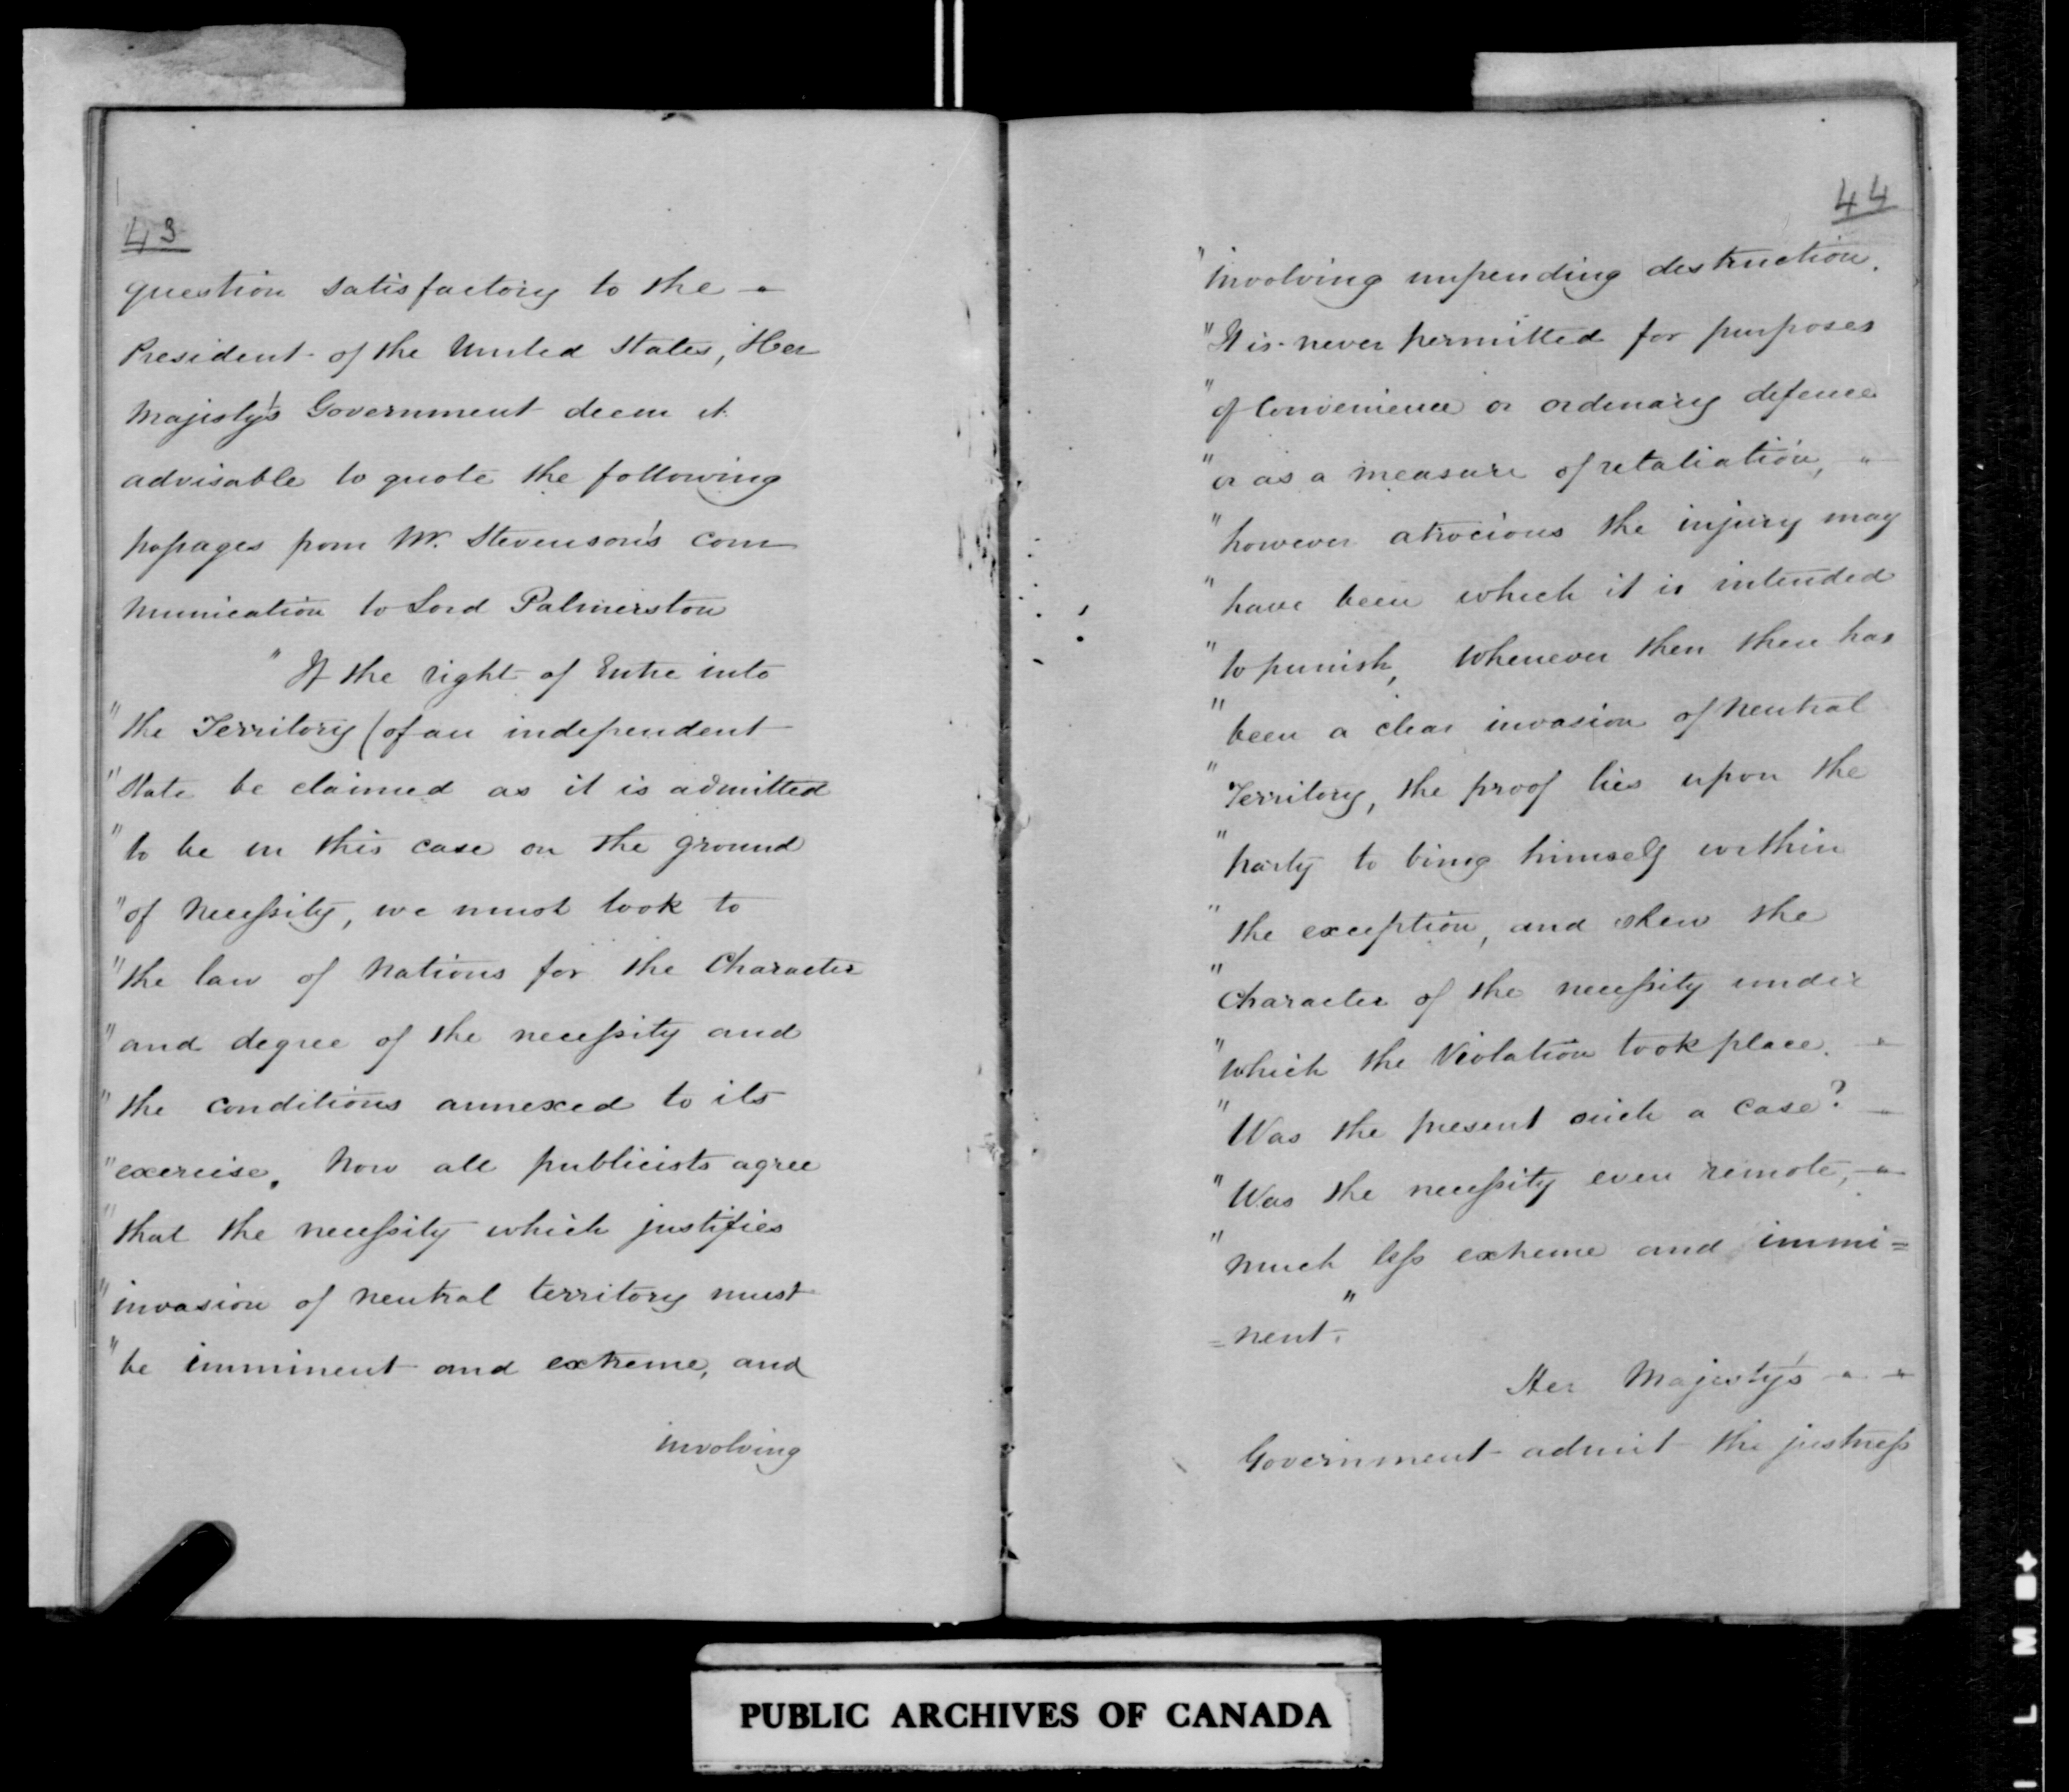 43
question satisfactory to the -
President of the United States, Her
Majesty's Government deem it
advisable to quote the following
passages from Mr. Stevenson's com
munication to Lord Palmerston
" If the right of Entre into
" the Territory (of an independent
" State be claimed as it is admitted
" to be in this case on the ground
" of necessity, we must look to
" the law of Nations for the Character
" and degree of the necessity and
" the conditions annexed to its
" exercise. Now all publicists agree
" that the necessity which justifies
" invasion of neutral territory must
" be imminent and extreme, and
involving
44
" involving impending destruction.
" It is never permitted for purposes
" of Convenience or ordinary defence
" or as a measure of retaliation, -
" however atrocious the injury may
" have been which it is intended
" to punish, Whenever then there has
" been a clear invasion of Neutral
" Territory, the proof lies upon the
" party to bring himself within
" the exception, and shew the
" Character of the necessity under
" which the Violation took place. -
" Was the present such a case? -
" Was the necessity even remote, -
" much less extreme and immi=
"
= nent.
Her Majesty's - -
Government admit the justness
PUBLIC ARCHIVES OF CANADA